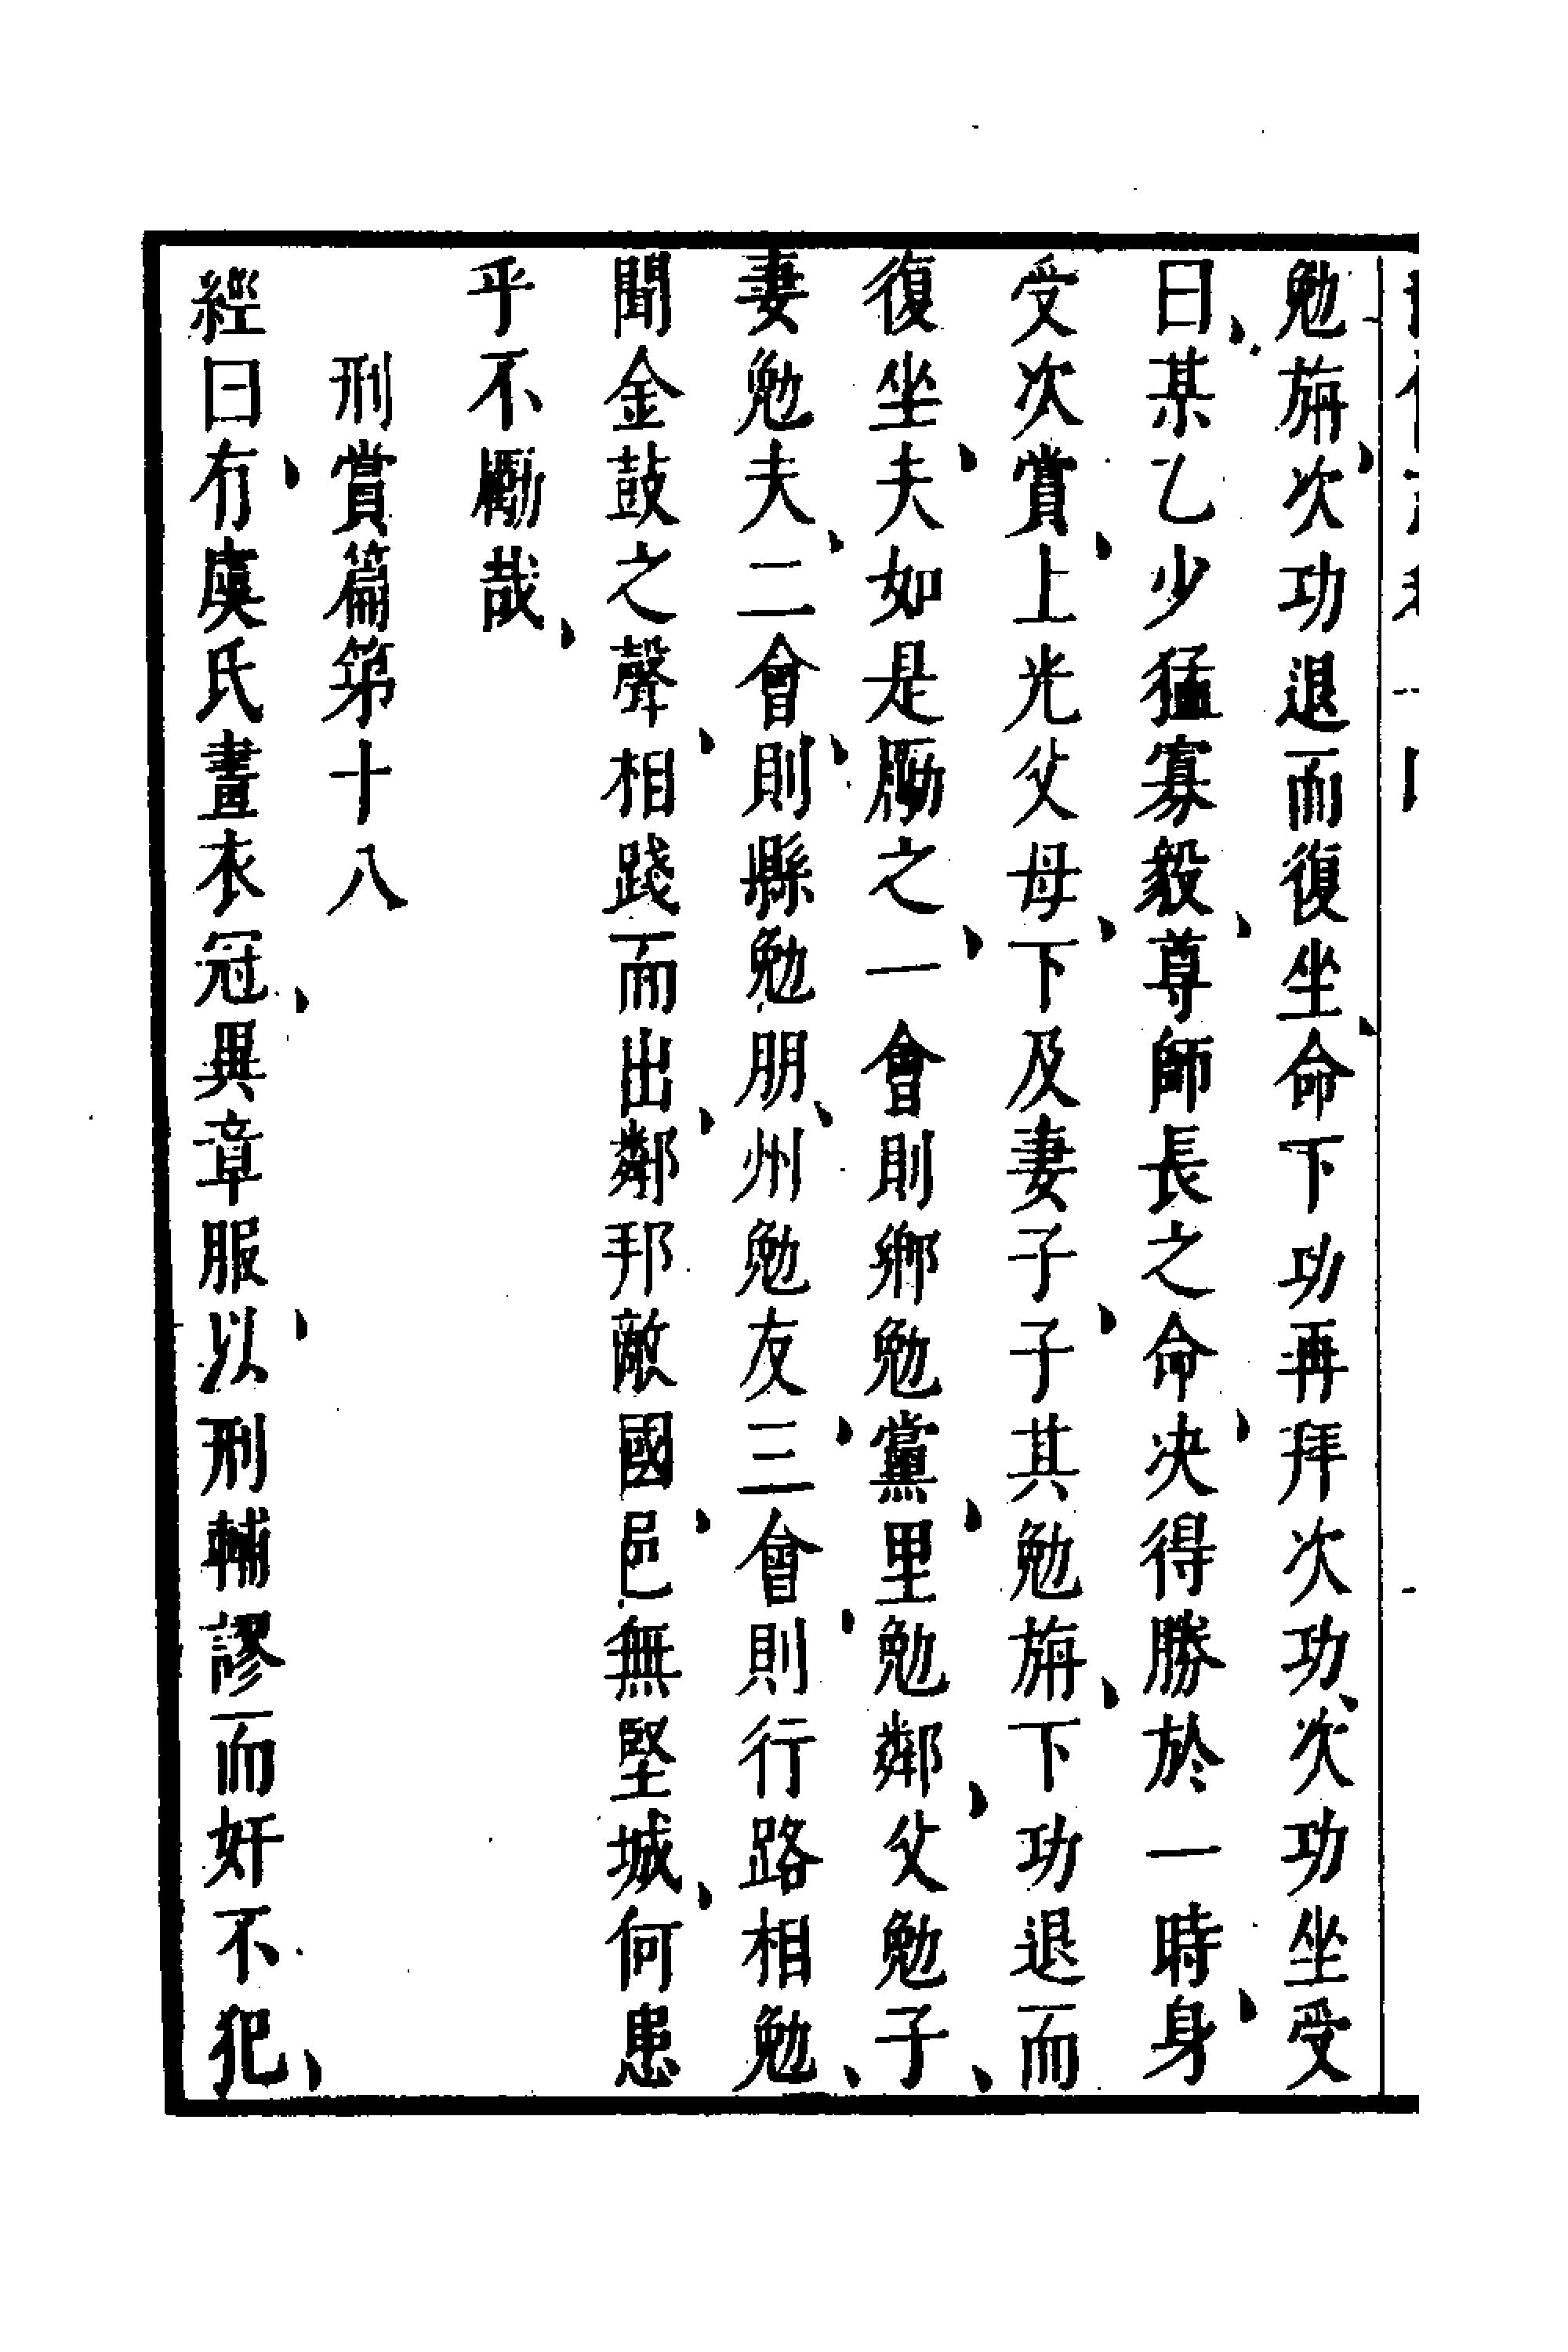 勉旃次功退而復坐命下功再拜次功次功坐受
曰某乙少猛寡毅尊師長之命决得勝於一時身
受次賞上光父母下及妻子子其勉旃下功退而
復坐夫如是勵之一會則鄉勉黨里勉鄰父勉子
妻勉夫二會則縣勉朋州勉友三會則行路相勉
聞金鼓之聲相踐而出鄰邦敵國邑無堅城何患
乎不勵哉
刑賞篇第十八
經曰有虞氏畫衣冠異章服以刑輔謬而奸不犯